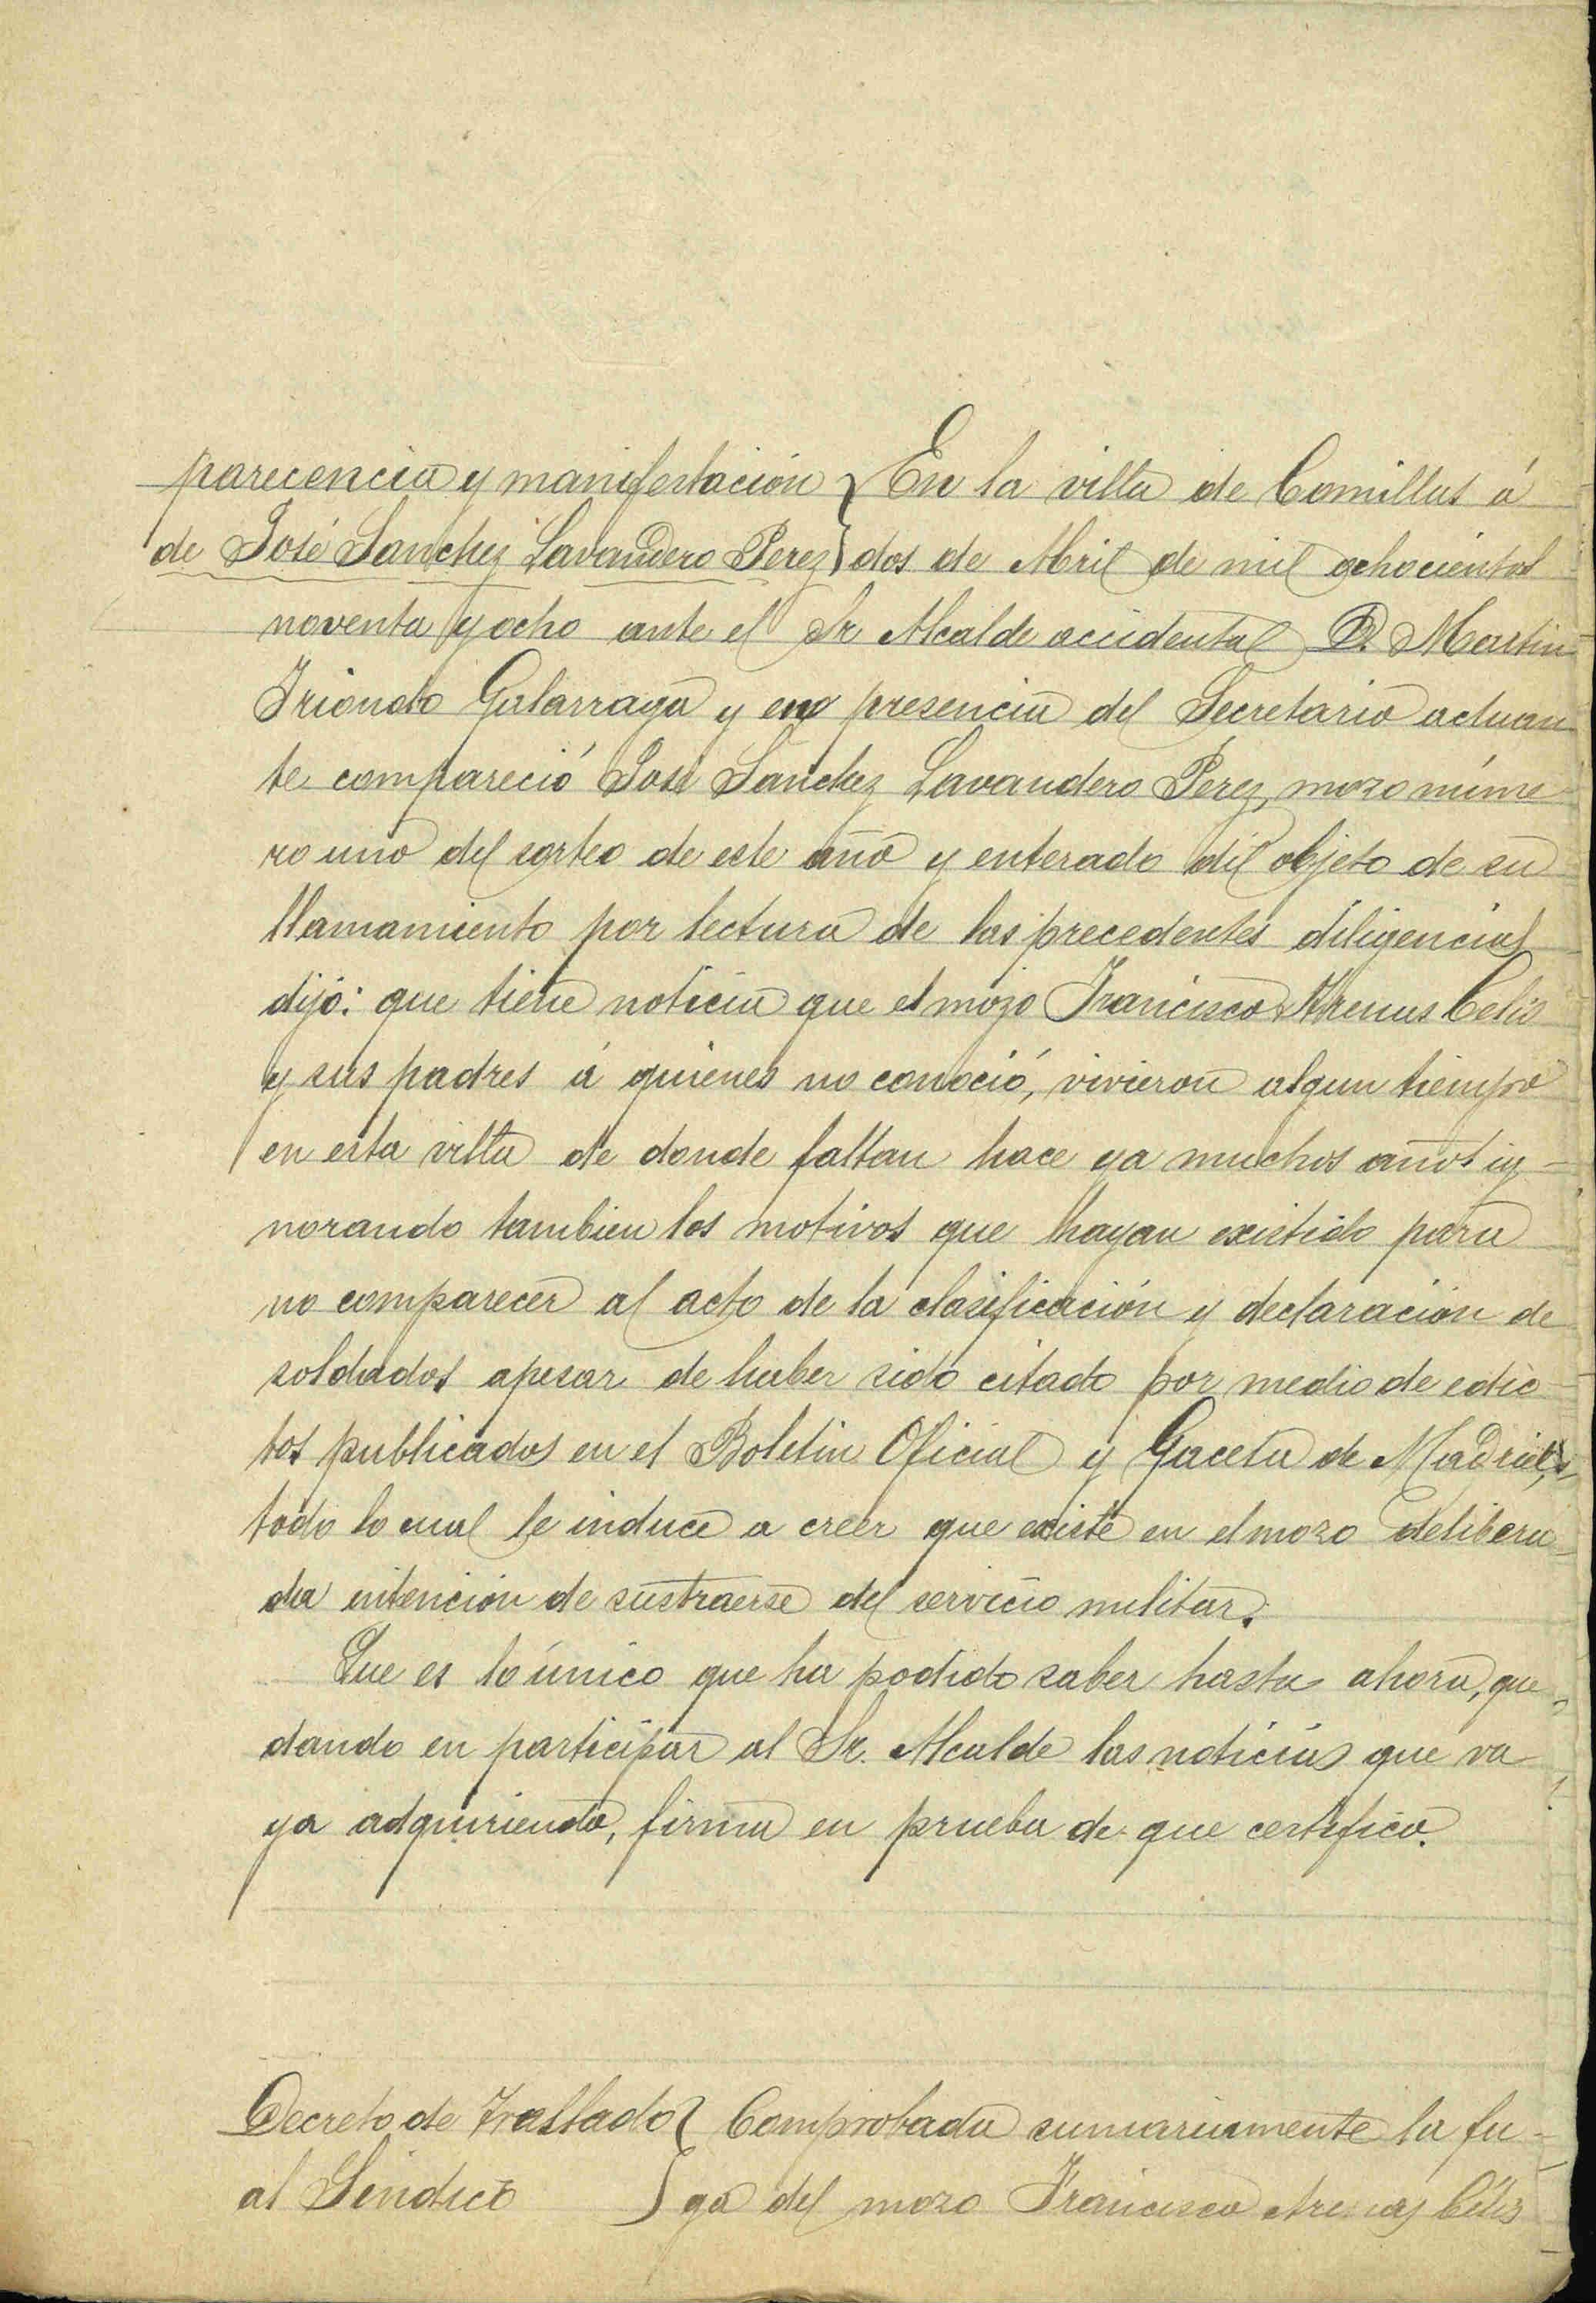 parecencia y manifestación } En la villa de Comillas á
de José Sanchez Lavandero Perez } dos de Abril de mil ochocientos
noventa y ocho ante el Sr Alcalde accidental D. Martin
Iriondo Galarraga y en presencia del Secretario actuan
te compareció José Sanchez Lavandero Perez, mozo núme
ro uno del sorteo de este año y enterado del objeto de su
llamamiento por lectura de las precedentes diligencias
dijo: que tiene noticia que el mozo Francisco Arenas Celis
y sus padres á quienes no conoció, vivieron algun tiempo
en esta villa de donde faltan hace ya muchos años ig-
norando tambien los motivos que hayan existido para
no comparecer al acto de la clasificación y declaración de
soldados apesar de haber sido citado por medio de edic-
tos publicados en el Boletin Oficial y Gaceta de Madrid,
todo lo cual le induce a creer que existe en el mozo delibera-
da intención de sustraerse del servicio militar.
Que es lo único que ha podido saber hasta ahora, que-
dando en participar al Sr. Alcalde las noticias que va-
ya adquiriendo, firma en prueba de que certifico.
Decreto de traslado } Comprobada sumariamente la fu-
al Sindico } ga del mozo Francisco Arenas Celis